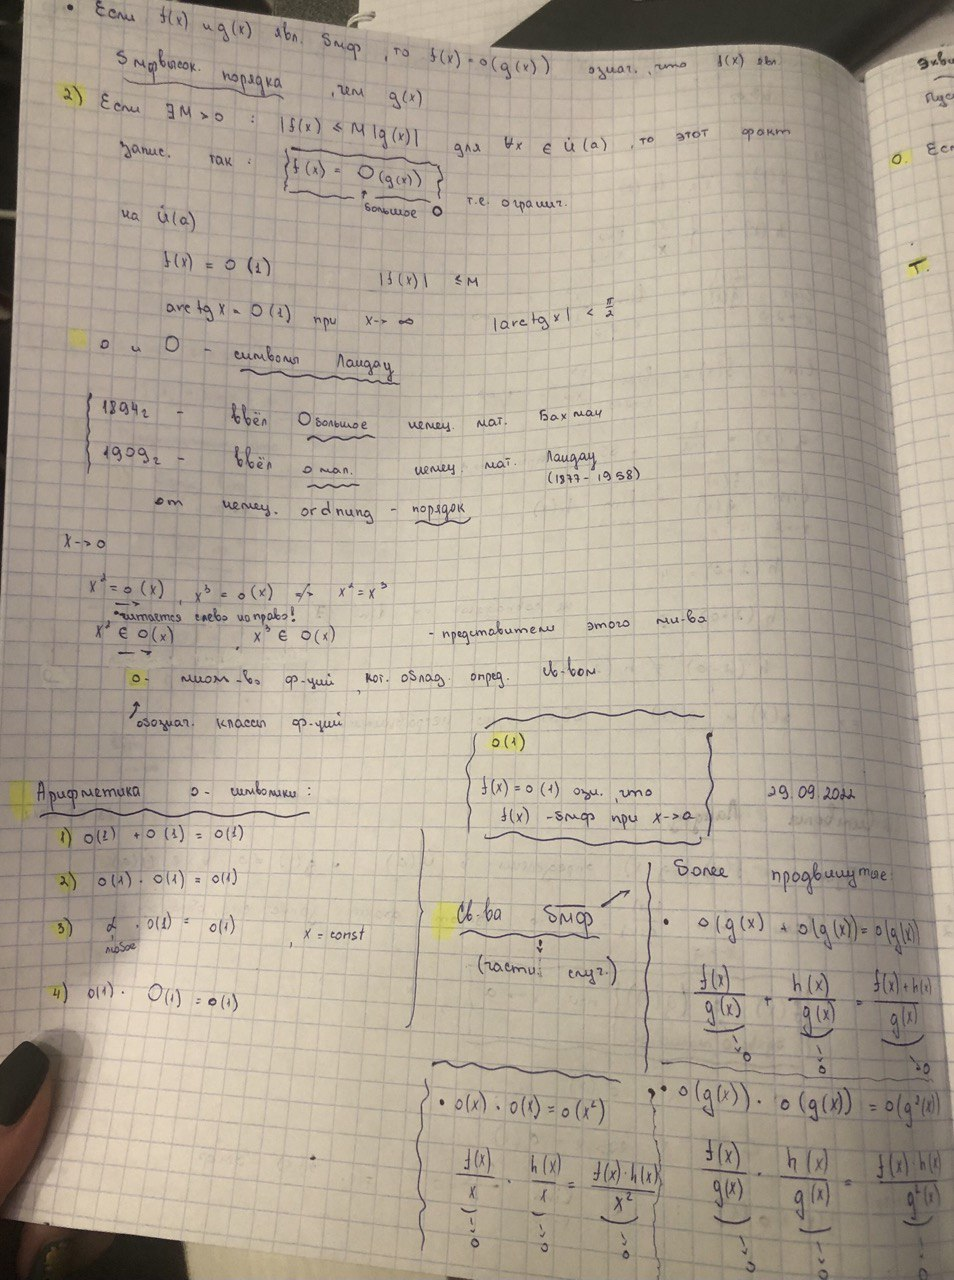 • Если f(x) и g(x) явл. Smф, то f(x) = o(g(x)) означ., что f(x) явл.
Smф высок. порядка, чем g(x)
2) Если ∃M>0 : |f(x)| ≤ M|g(x)| для ∀x ∈ U̇(a), то этот факт
запис. так: f(x) = O(g(x)) т.е. огранич.
большое O
на U̇(a)
f(x) = O(1) |f(x)| ≤ M
arctg x = O(1) при x → ∞ |arctg x| < π/2
o и O - символы Ландау
1894г - ввёл O большое немец. мат. Бахман
1909г - ввёл o мал. немец. мат. Ландау
(1877-1938)
от немец. ordnung - порядок
x → 0
x² = o(x), x³ = o(x) ≠> x² = x³
читается слево направо!
x² ∈ o(x), x³ ∈ o(x) - представители этого мн-ва
o - множ-во ф-ций, кот. облад. опред. св-вом
обознач. классы ф-ций
o(1)
f(x) = o(1) озн., что
f(x) - Smф при x → a
29.09.2022
Арифметика o - символики:
1) o(1) + o(1) = o(1)
2) o(1) · o(1) = o(1)
3) α · o(1) = o(1), x = const
любое
4) o(1) · O(1) = o(1)
Св-ва Smф
(частн. случ.)
Более продвинутые:
• o(g(x) + o(g(x)) = o(g(x))
f(x)/g(x) + h(x)/g(x) = f(x)+h(x)/g(x)
→0 →0 →0
• o(x) · o(x) = o(x²)
f(x)/x · h(x)/x = f(x)·h(x)/x²
→0 →0 →0
• o(g(x)) · o(g(x)) = o(g²(x))
f(x)/g(x) · h(x)/g(x) = f(x)·h(x)/g²(x)
→0 →0
Экви
Пус
O. Есл
T.